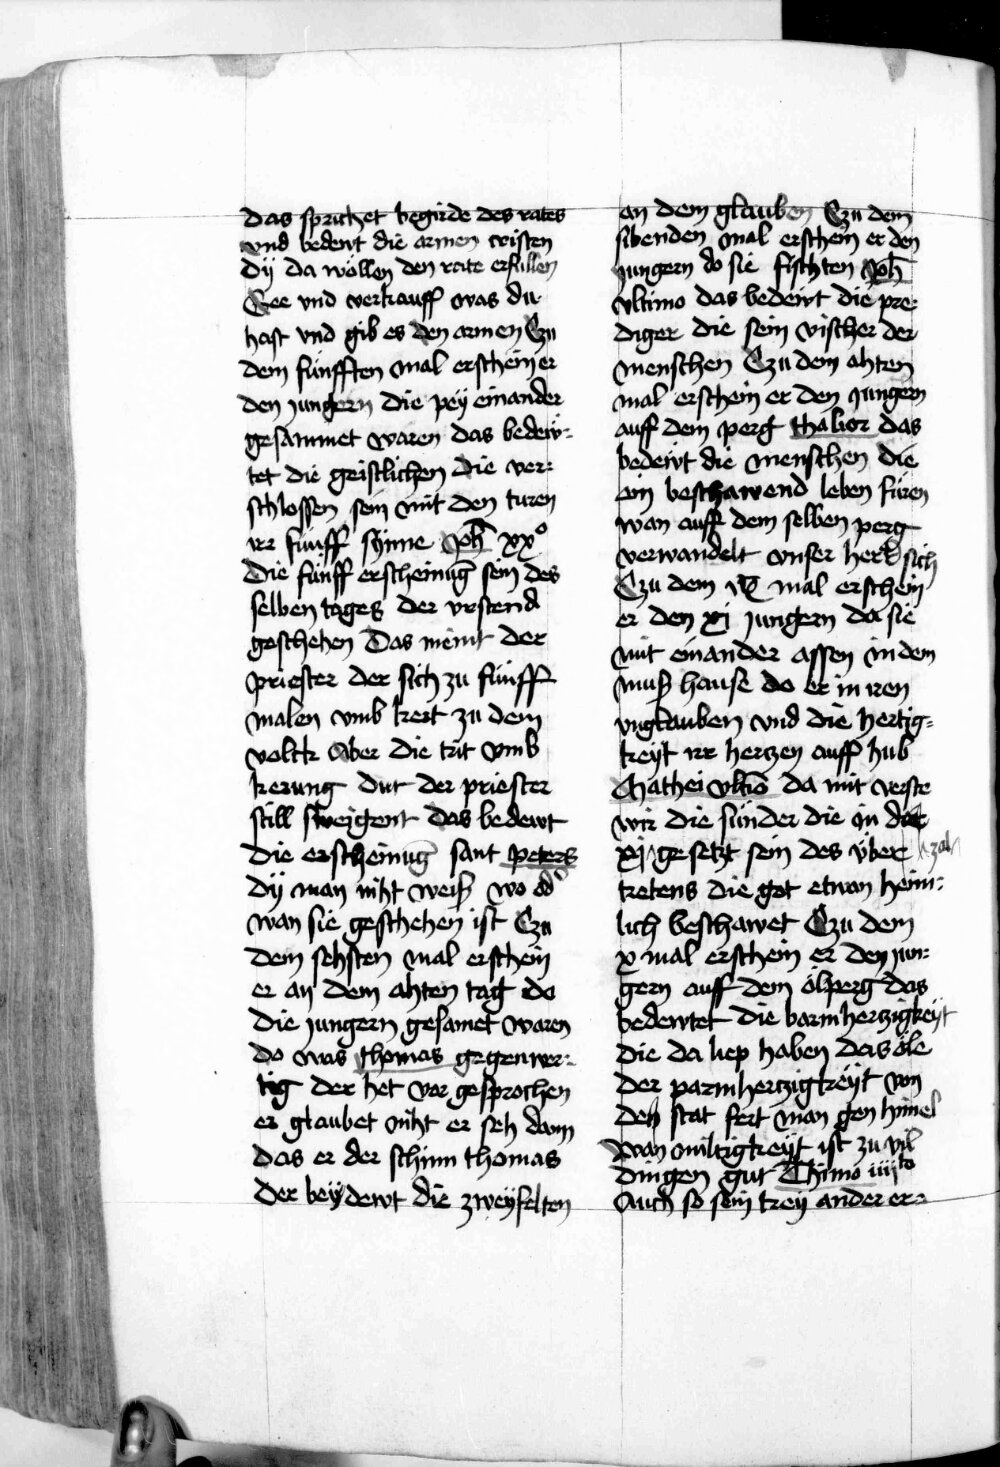 das sprichet begirde des rates
vnd bedewt die armen cristen
dy da wöllen den rate erfullen
Gee vnd verkauff was du
hast vnd gib es den armen Czu
dem fünfften mal erschein er
den jungern die pey einander
gesammet waren das bedew-
tet die geistlichen die ver-
schlossen sein mit den turen
irr fünff synne Joh xxo
Die fünff erscheinūg sein des
selben tages der vrstend
geschehen Das meint der
priester der sich zu fünff
malen vmb kert zu dem
volck Aber die trit vmb
kerung dut der priester
still sweigent das bedewt
die erscheinūg sant peters
dy man niht weiß wo od
wan sie geschehen ist Czu
dem sehsten mal erschein
er an dem ahten tag do
die jungern gesamet waren
do was thomas gegenwer-
tig der het vor gesprochen
er glaubet niht er seh dann
das er der schinn thomas
der beydewt die zweyfelten
an dem glauben Czu dem
sibenden mal erschein er den
jungern do sie fischten Joh
vltimo das bedewt die pre-
diger die sein vischer der
menschen Czu dem ahten
mal erschein er den jungern
auff dem perg thabor das
bedewt die menschen die
ein beschawend leben füren
wan auff dem selben perg
verwandelt vnser herr sich
Czu dem ix mal erschein
er den xj jungern da sie
mit einander assen in dem
muß hause do er in iren
vnglauben vnd die hertig-
keyt irr hertzen auff hub
Mathei vltīo da mit verste
wir die sünder die in der
xj gesetzt sein des über zal
tretens die got etwan heim-
lich beschawet Czu dem
x mal erschein er den jun-
gern auff dem ölperg das
bedewtet die barmhertzigkeyt
die da liep haben das öle
der parmhertzigkeyt von
den stat fert man gen himel
wan miltigkeyt ist zu vil
dingen gut Thimo iiijto
Auch so sein trey ander er-